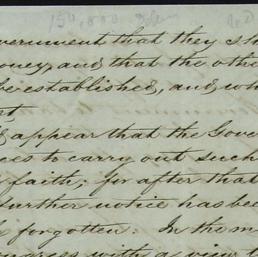 150,000
vernment that they sh
oney, and that the othe
be established, and wh
t
d appear that the Gove
ces to carry out such
faith; for after that
further notice has bee
forgotten. In the m
quarces with a view t